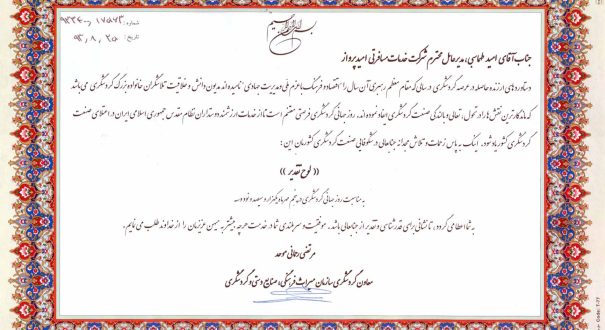 بسم الله الرحمن الرحیم
شماره: ۹۳۲۴۰۰/۱۷۵۷۳
تاریخ: ۹۳،۸،۲۵
جناب آقای امید طهماسبی، مدیرعامل محترم شرکت خدمات مسافرتی امید پرواز
دستاوردهای ارزنده حاصله در عرصه گردشگری در سالی که مقام معظم رهبری آن سال را اقتصاد و فرهنگ با عزم ملی و مدیریت جهادی نامیده‌اند مدیون دانش و خلاقیت تلاشگران خانواده بزرگ گردشگری می‌باشد
که ماندگارترین نقش‌ها را در تحول، تعالی و بالندگی صنعت گردشگری ایفاد نموده‌اند. روز جهانی گردشگری فرصتی مغتنم است تا از خدمات ارزشمند دوستداران نظام مقدس جمهوری اسلامی ایران در اعتلای صنعت
گردشگری کشور یاد شود. اینک به پاس زحمات و تلاش مجدانه جنابعالی در شکوفایی صنعت گردشگری کشورمان این:
«لوح تقدیر»
به مناسبت روز جهانی گردشگری در پنجم مهرماه یکهزار و سیصد و نود و سه
به شما اعطا می گردد، تا نشانی برای قدرشناسی و تقدیر از جنابعالی باشد. موفقیت و سربلندی شما در خدمت هرچه بیشتر به میهن عزیزمان را از خداوند طلب می نمایم.
مرتضی رحمانی موحد
معاون گردشگری سازمان میراث فرهنگی، صنایع دستی و گردشگری
Code: T-77